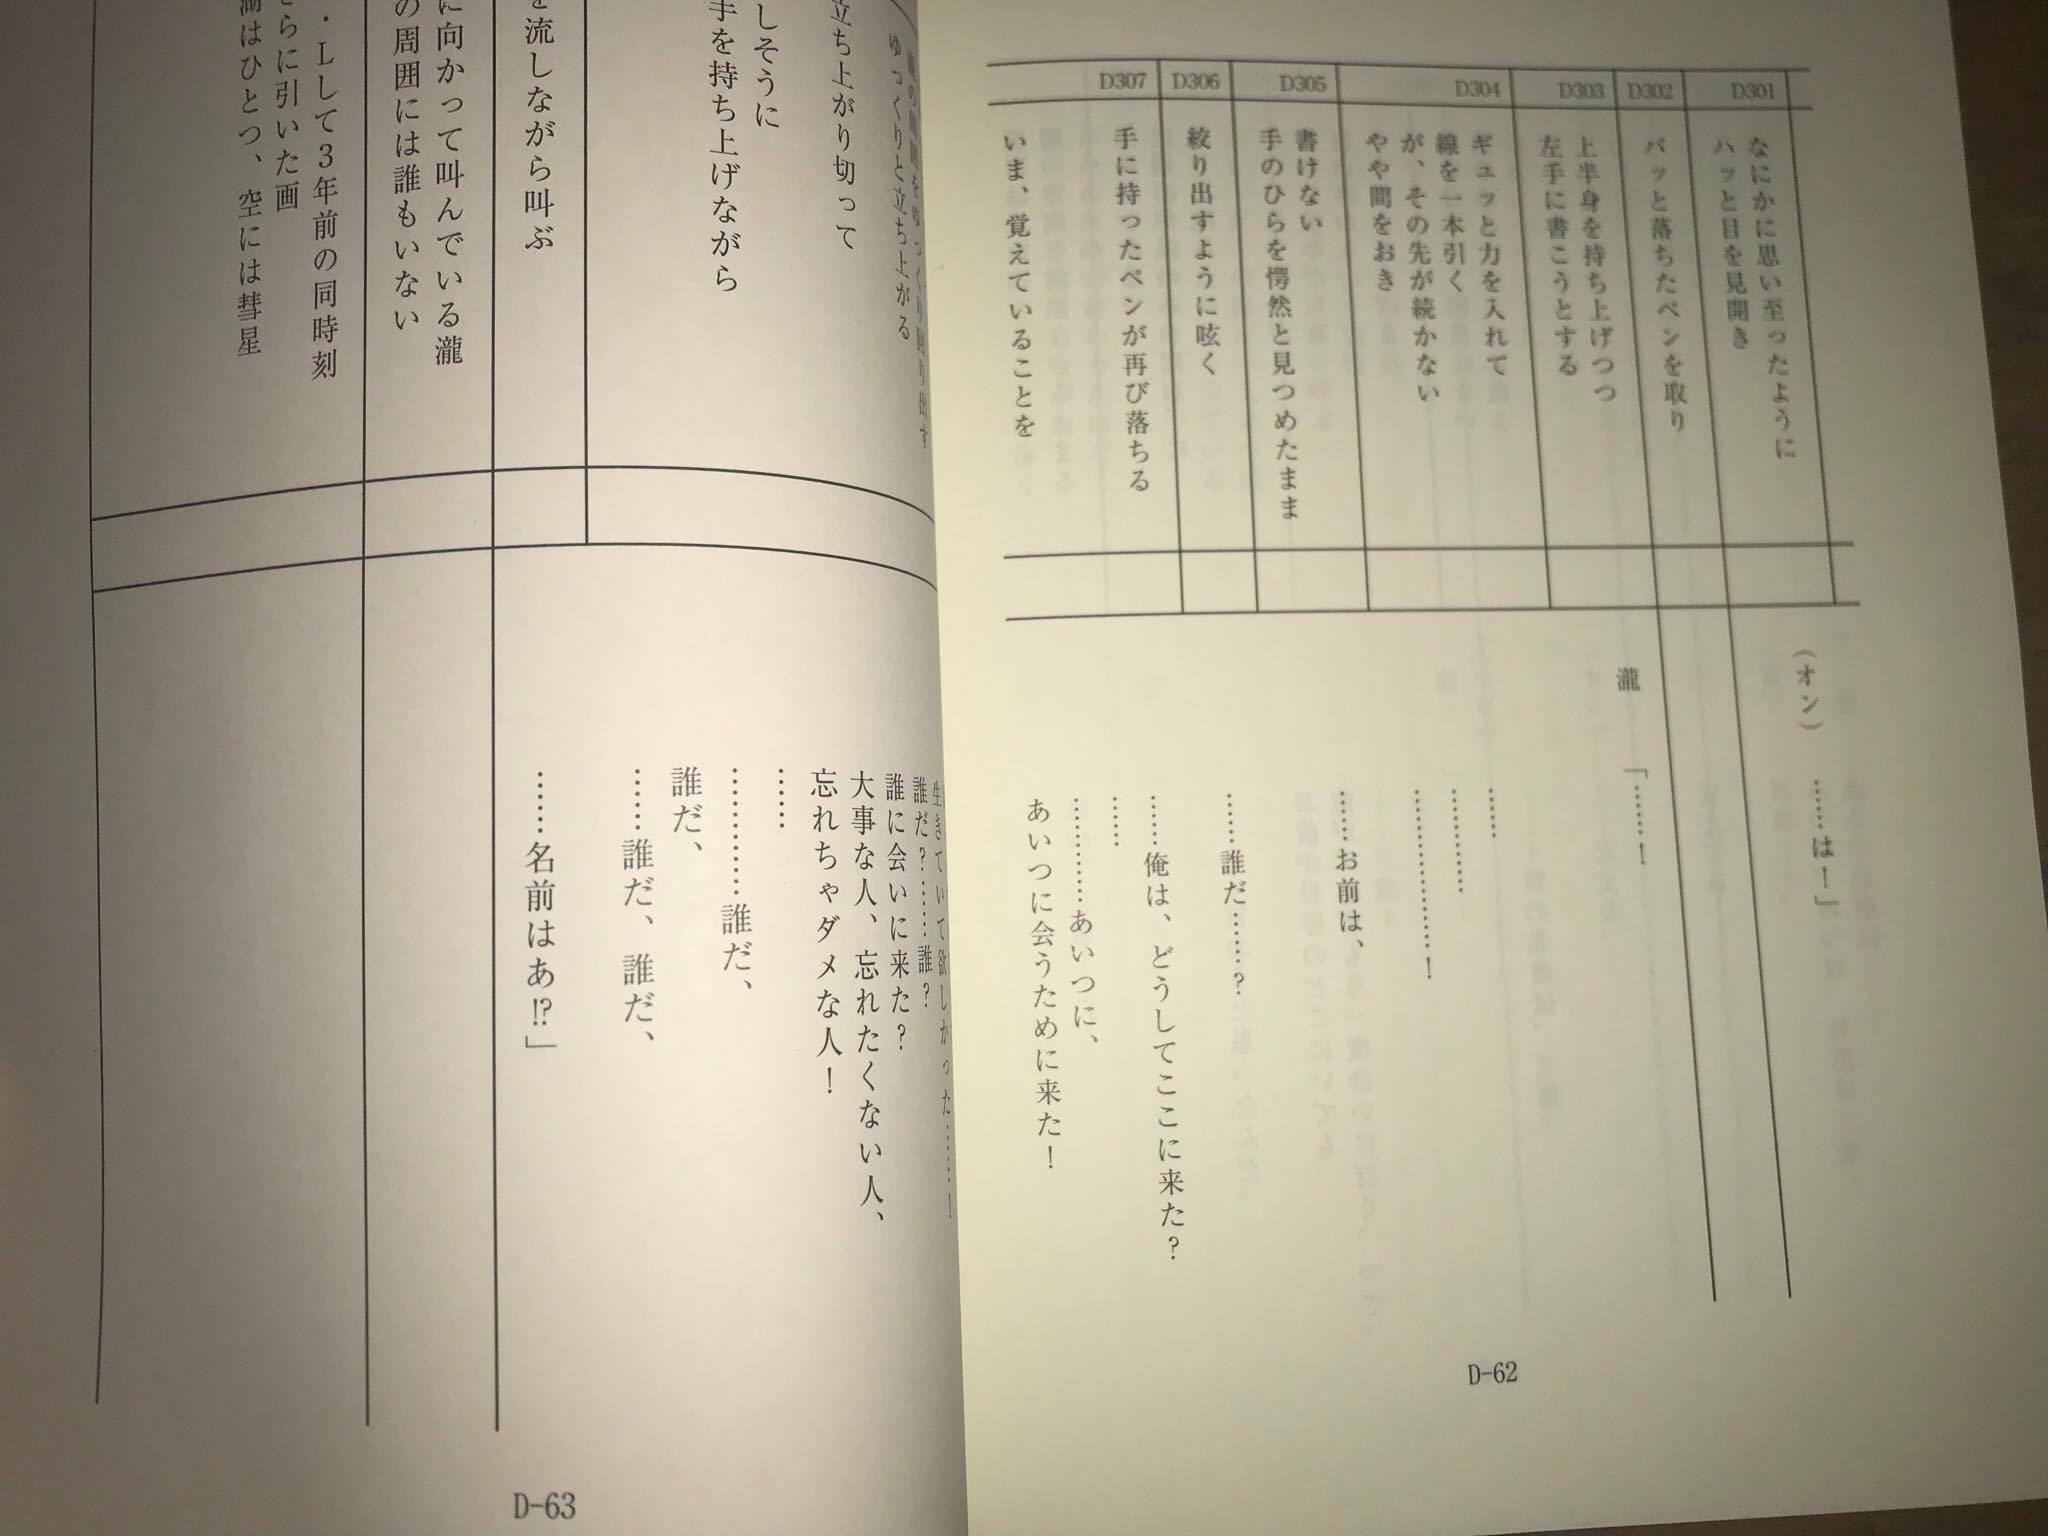 D301
なにかに思い至ったように
ハッと目を見開き
(オン)
……は！」
D302
バッと落ちたペンを取り
D303
上半身を持ち上げつつ
左手に書こうとする
瀧
「……！
D304
ギュッと力を入れて
線を一本引く
が、その先が続かない
やや間をおき
……
…………
………………！
D305
書けない
手のひらを愕然と見つめたまま
……お前は、
D306
絞り出すように呟く
……誰だ……？
D307
手に持ったペンが再び落ちる
いま、覚えていることを
……俺は、どうしてここに来た？
……
…………あいつに、
あいつに会うために来た！
D-62
ゆっくりと立ち上がる
生きていて欲しかった……！
誰だ？……誰？
誰に会いに来た？
大事な人、忘れたくない人、
忘れちゃダメな人！
立ち上がり切って
……
しそうに
手を持ち上げながら
…………誰だ、
誰だ、
……誰だ、誰だ、
を流しながら叫ぶ
……名前はあ!?」
に向かって叫んでいる瀧
の周囲には誰もいない
・Lして3年前の同時刻
さらに引いた画
湖はひとつ、空には彗星
D-63